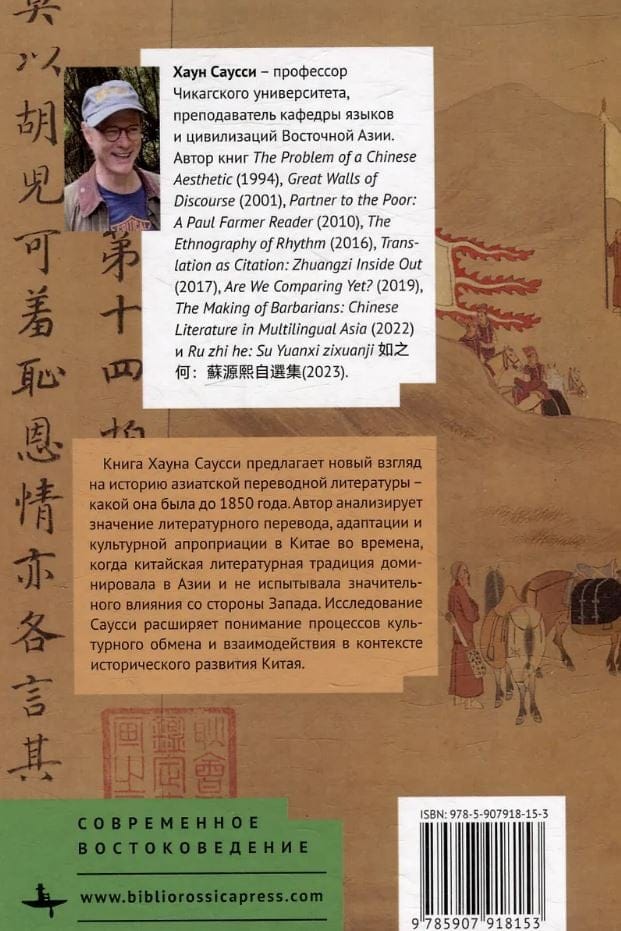 以胡兒可羞恥恩情亦各言其
第十四
Хаун Саусси – профессор
Чикагского университета,
преподаватель кафедры языков
и цивилизаций Восточной Азии.
Автор книг The Problem of a Chinese
Aesthetic (1994), Great Walls of
Discourse (2001), Partner to the Poor:
A Paul Farmer Reader (2010), The
Ethnography of Rhythm (2016), Trans-
lation as Citation: Zhuangzi Inside Out
(2017), Are We Comparing Yet? (2019),
The Making of Barbarians: Chinese
Literature in Multilingual Asia (2022)
и Ru zhi he: Su Yuanxi zixuanji 如之
何：蘇源熙自選集(2023).
Книга Хауна Саусси предлагает новый взгляд
на историю азиатской переводной литературы –
какой она была до 1850 года. Автор анализирует
значение литературного перевода, адаптации и
культурной апроприации в Китае во времена,
когда китайская литературная традиция доми-
нировала в Азии и не испытывала значитель-
ного влияния со стороны Запада. Исследование
Саусси расширяет понимание процессов куль-
турного обмена и взаимодействия в контексте
исторического развития Китая.
СОВРЕМЕННОЕ
ВОСТОКОВЕДЕНИЕ
www.bibliorossicapress.com
ISBN: 978-5-907918-15-3
9 785907 918153